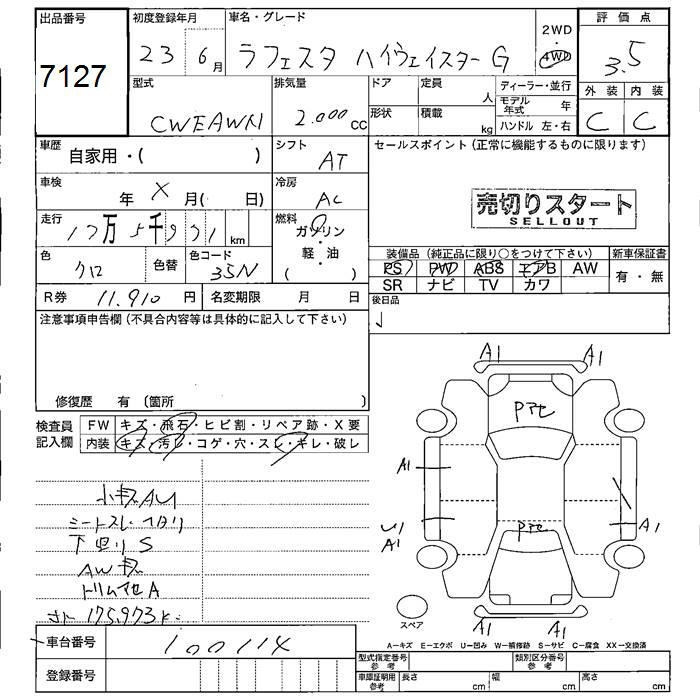 出品番号
7127
初度登録年月
23 6月
車名・グレード
ラフェスタ ハイウェイスターG
2WD
4WD
評価点
3.5
外装 内装
C C
型式
CWEAWN
排気量
2.000 CC
ドア 定員
人
形状 積載
kg
ディーラー・並行
モデル年式 年
ハンドル 左・右
車歴
自家用・( )
シフト
AT
セールスポイント(正常に機能するものに限ります)
車検
年 X 月( 日)
冷房
AC
売切りスタート
SELLOUT
走行
17万5千971 km
燃料
ガソリン
・
軽・油
( )
色
クロ
色替
色コード
35N
装備品(純正品に限り○をつけて下さい)
PS PW ABS エアB AW
SR ナビ TV カワ
新車保証書
有・無
R券 11.910 円
名変期限 月 日
後日品
注意事項申告欄(不具合内容等は具体的に記入して下さい)
修復歴 有 〔箇所 〕
検査員記入欄
FW キズ・飛石・ヒビ割・リペア跡・X要
内装 キズ・汚レ・コゲ・穴・スレ・キレ・破レ
小キズAU
シートスレ・
下回りS
AWキズ
トリムアセA
175,973k
車台番号 100114
登録番号
A1 A1
Pアセ
A1
A1
A1
Pアセ
A1 A1
スペア
A-キズ E-エクボ U-凹み W-補修跡 S-サビ C-腐食 XX-交換済
型式指定番号 参考
類別区分番号 参考
車庫証明用 参考 長さ cm 幅 cm 高さ cm